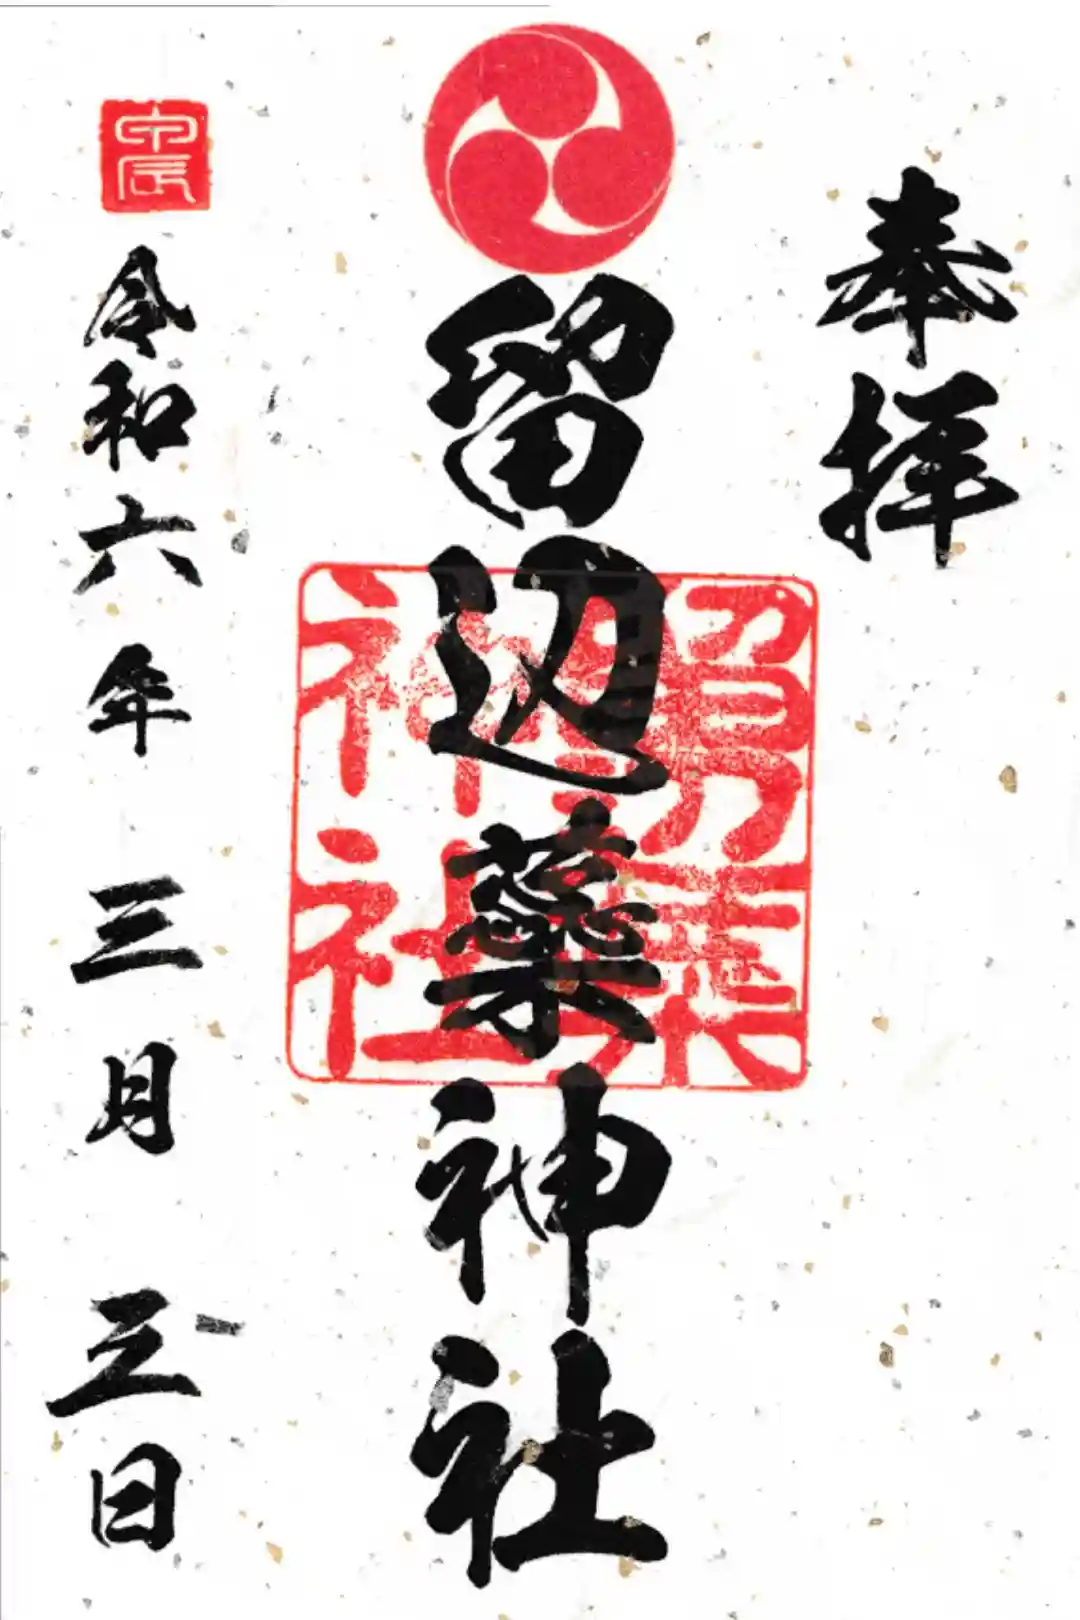 奉拝
留辺蘂神社
留辺蘂
神社
甲辰
令和六年 三月 三日